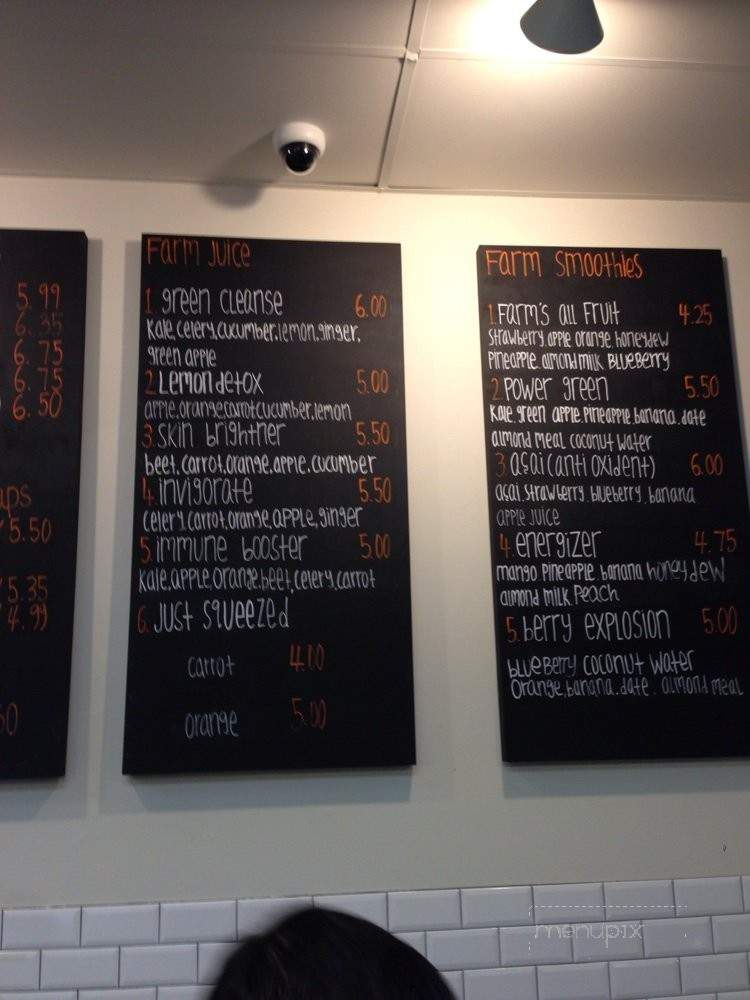 5.99
6.35
6.75
6.75
6.50
5.50
5.35
4.99
Farm Juice
1. green cleanse 6.00
kale, celery, cucumber, lemon, ginger,
green apple
2. Lemon detox 5.00
apple, orange carrot cucumber, lemon
3. skin brightner 5.50
beet, carrot, orange, apple, cucumber
4. invigorate 5.50
celery, carrot, orange, apple, ginger
5. immune booster 5.00
kale, apple, orange, beet, celery, carrot
6. Just squeezed
carrot 4.00
orange 5.00
Farm smoothies
1. Farm's all Fruit 4.25
strawberry apple orange honeydew
pineapple. almond milk BLUEBERRY
2. Power green 5.50
Kale. green apple. pineapple. banana. date
almond meal. coconut water
3 açai (anti oxident) 6.00
açai strawberry blueberry. banana
apple juice
4. energizer 4.75
mango pineapple. banana honeydew
almond milk. Peach
5. berry explosion 5.00
blueberry coconut water
orange, banana. date. almond meal
menupix